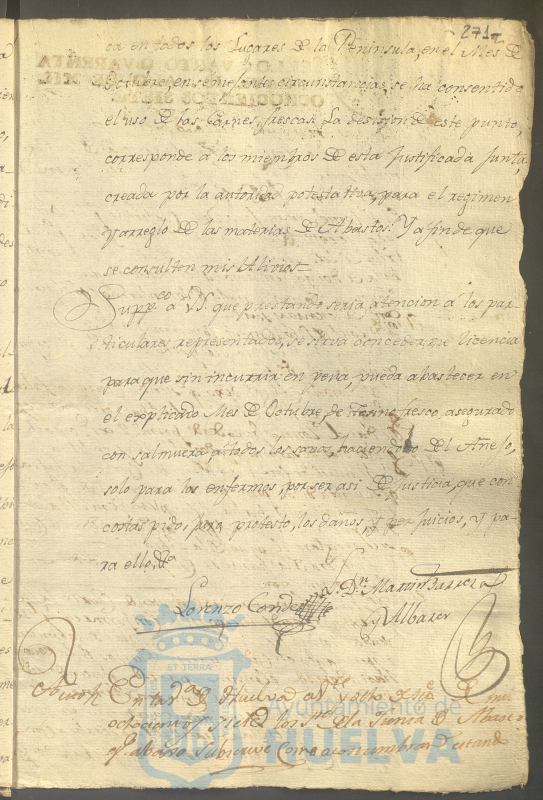 271
ca en todos los Lugares de la Peninsula, en el Mes de
Octubre, en semejantes circunstancias, se ha consentido
el uso de las Carnes frescas: La desicion de este punto,
corresponde a los miembros de esta Justificada Junta,
creada por la autoridad potestativa, para el regimen
y arreglo de las materias de Abastos: Y a fin de que
se consulten mis Alivios
Suppco a VS. que prestando seria atencion a los par-
ticulares representados, se sirva concederme licencia
para que sin incurrir en pena, pueda abastecer en
el explicado Mes de Octubre, de tosino fresco, asegurado
con salmuera a todos los sanos, haciendolo del Añejo,
solo para los enfermos, por ser asi de Justicia, que con
costas pido, juro, protesto, los danos, y perjuicios, y pa-
ra ello, &a
Lorenzo Conde
L. Dn. Martin Barrera
y Albarer
En la de Huelva a
ochocientos siete los Sres de la Junta de Abastos
de Cavildo como acostumbran estando
ET TERRÆ
Ayuntamiento de
HUELVA